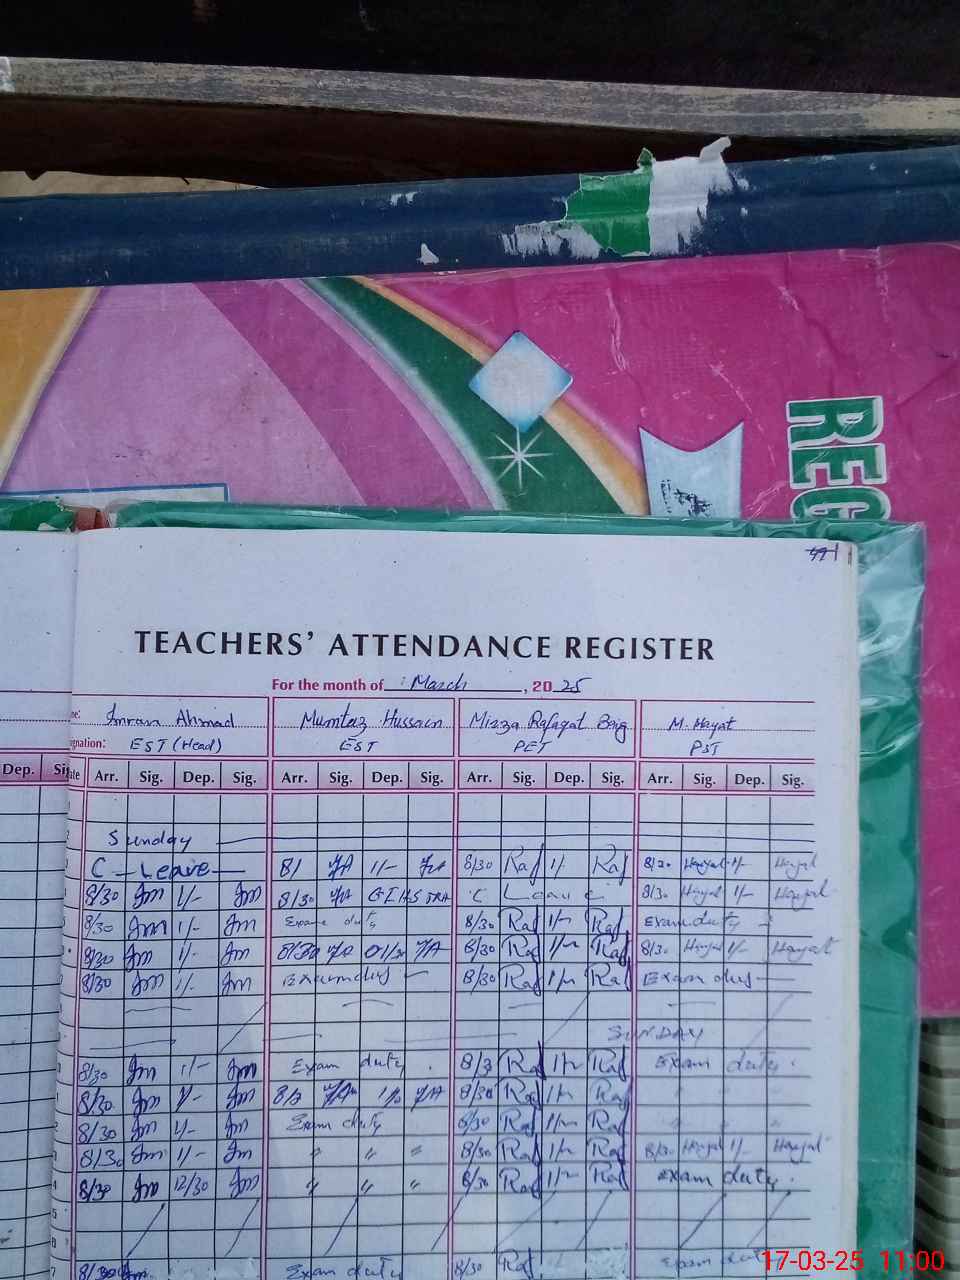 REG
TEACHERS' ATTENDANCE REGISTER
For the month of March, 2025
me: Imran Ahmad Mumtaz Hussain Mirza Rafaqat Baig M. Hayat
ignation: EST (Head) EST PET PST
Dep. Sig
ate Arr. Sig. Dep. Sig. Arr. Sig. Dep. Sig. Arr. Sig. Dep. Sig. Arr. Sig. Dep. Sig.
Sunday
C - Leave 8/ 1/- 8/30 Raf 1/- Raf 8/30 Hayat 1/- Hayat
8/30 Im 1/- Im 8/30 C Leave 8/30 Hayat 1/- Hayat
8/30 Im 1/- Im Exam duty 8/30 Raf 1/- Raf Exam duty
8/30 Im 1/- Im 8/30 8/30 Raf 1/- Raf 8/30 Hayat 1/- Hayat
8/30 Im 1/- Im Exam duty 8/30 Raf 1/- Raf Exam duty
SUNDAY
8/30 Im 1/- Im Exam duty . 8/3 Raf 1/- Raf Exam duty .
8/30 Im 1/- Im 8/30 Raf 1/- Raf
8/30 Im 1/- Im Exam duty 8/30 Raf 1/- Raf
8/30 Im 1/- Im " " " 8/30 Raf 1/- Raf 8/30 Hayat 1/- Hayat
8/30 Im 12/30 Im " " " 8/30 Raf 1/- Raf Exam duty .
8/30 Im Exam duty 8/30 Raf Exam
17-03-25 11:00